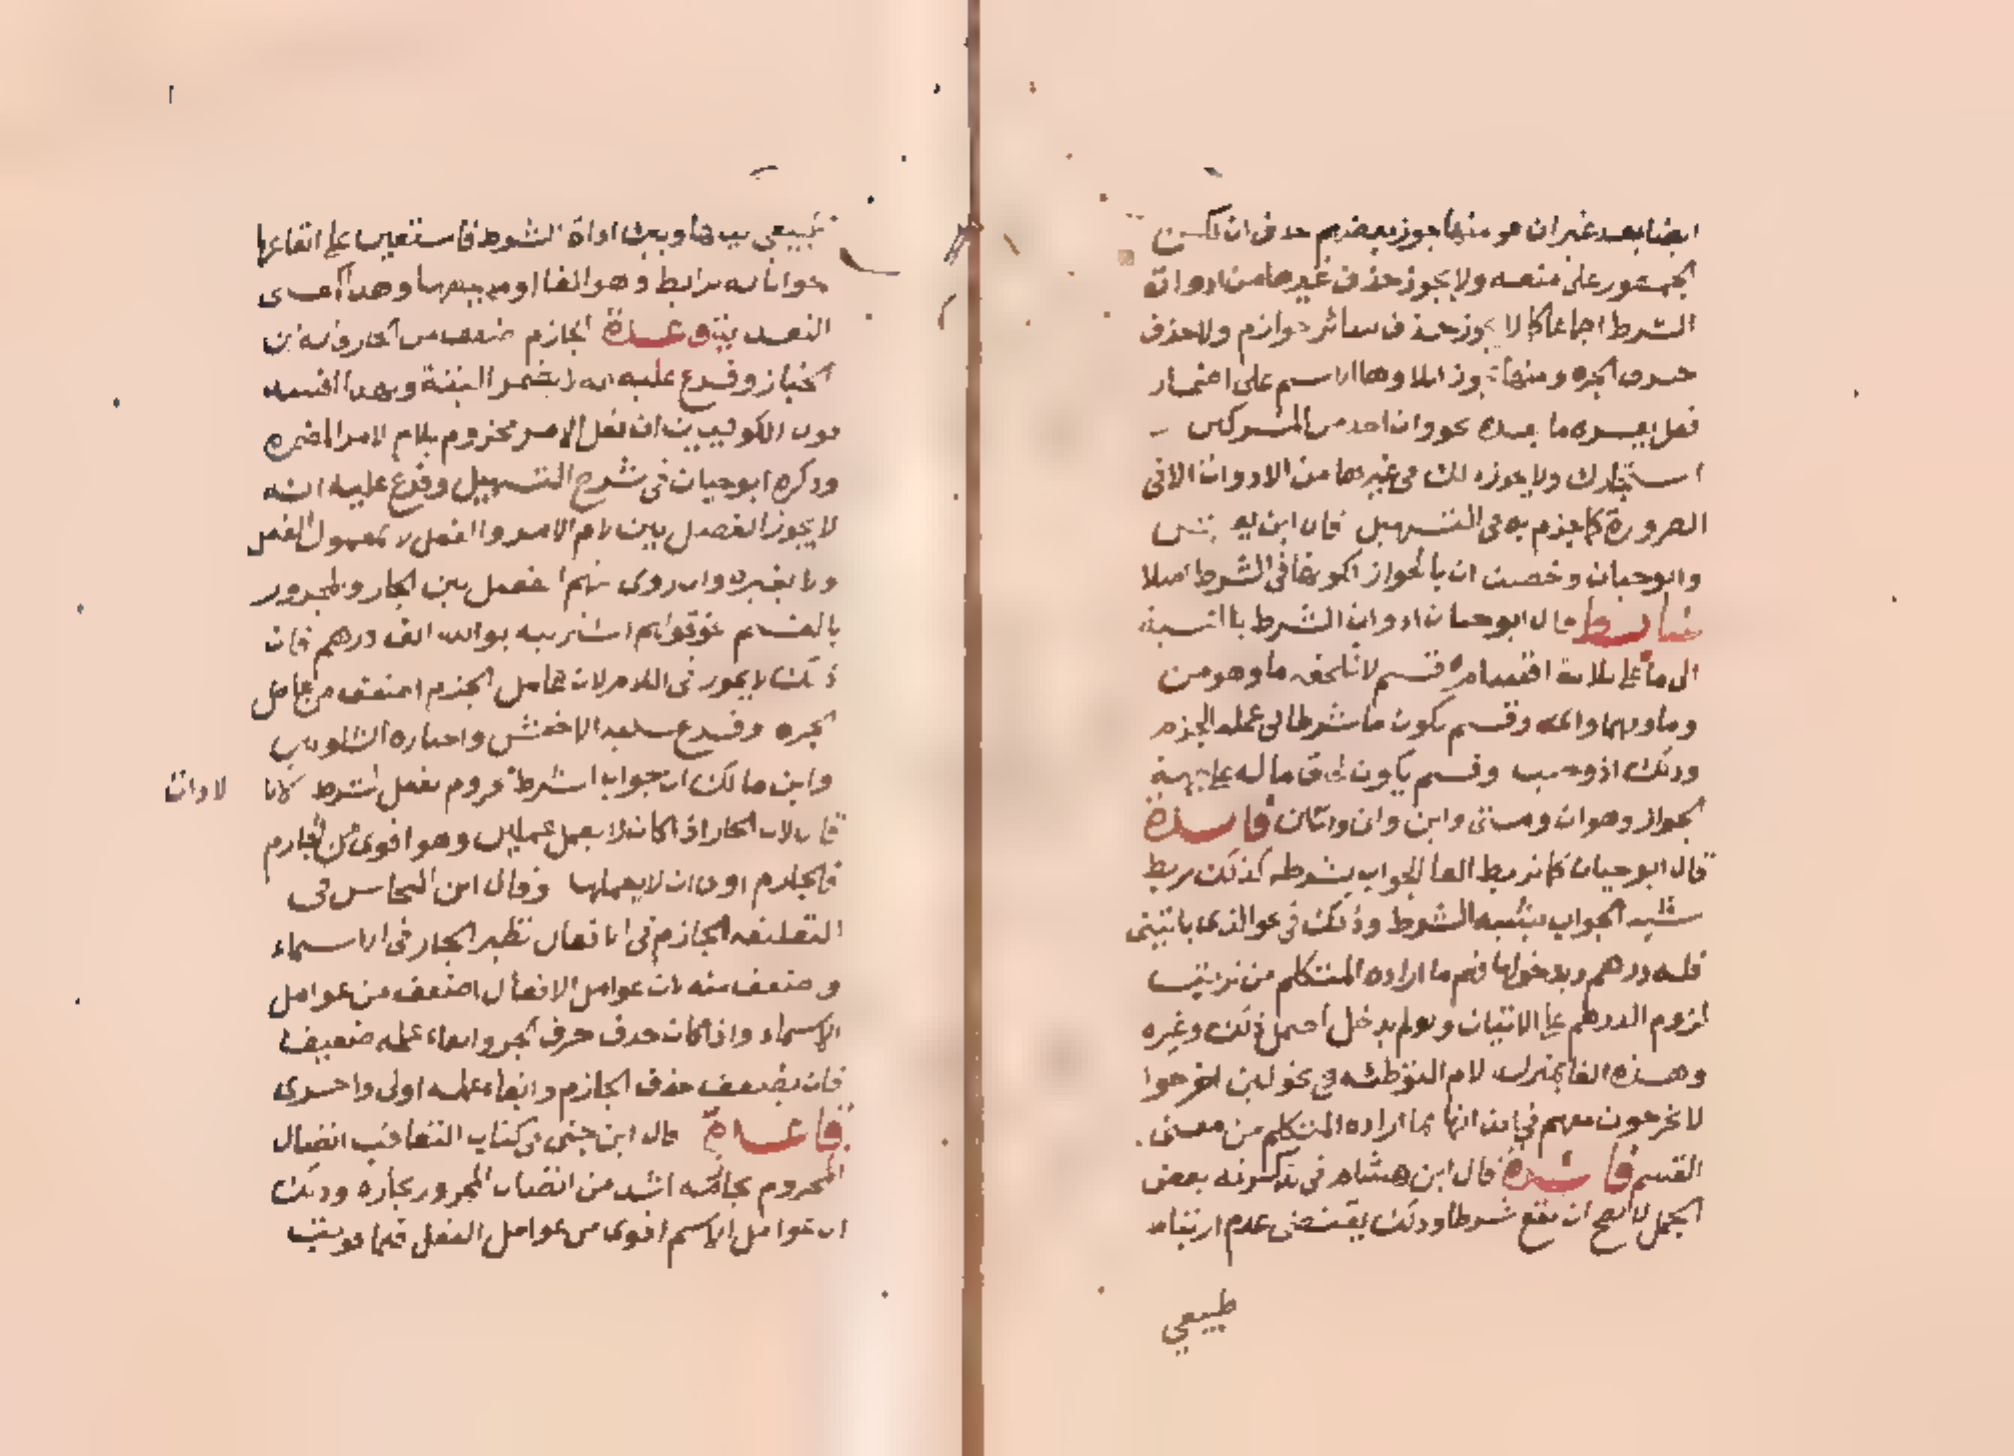 ايضا بعد غير ان هو منها جوز بعضهم حذف ان لكن
الجمهور على منعه ولا يجوز حذف غيرها من ادوات
الشرط اجماعا كما لا يجوز حذف سائر جوازم ولا حذف
حرف الجر ومنها يجوز ايلاوها الاسم على اضمار
فعل يفسره ما بعده نحو وان احد من المشركين
استجارك ولا يجوز ذلك في غيرها من الادوات الا في
الضرورة كما جزم به في التسهيل قال ابن يعيش
وابو حيان وخصت ان بالجواز لكونها في الشرط اصلا
ضابط قال ابو حيان ادوات الشرط بالنسبة
الى ما على ثلاثة اقسام قسم لا تلحقه ما وهو من
وما ومهما واي وقسم يكون ما شرطا في عمله الجزم
وذلك اذ وحيث وقسم يكون لحاق ما له على جهة
الجواز وهو ان ومتى واين وان وايان فائدة
قال ابو حيان كما تربط الفا الجواب بشرطه كذلك تربط
شبه الجواب بشبه الشرط وذلك في نحو الذي ياتيني
فله درهم وبدخولها فهم ما اراده المتكلم من ترتيب
لزوم الدرهم على الاتيان ولو لم يدخل احتمل ذلك وغيره
وهذه الفا بمنزلة لام التوطئة في نحو لين اخرجوا
لا يخرجون معهم في ايذانها بما اراده المتكلم من معنى
القسم فائدة قال ابن هشام في تذكرته بعض
الجمل لا يصح ان يقع شرطا وذلك يقتضي عدم ارتباط
طبيعي
طبيعي بينها وبين اداة الشرط فاستعين على ايقاعها
جوابا له برابط وهو الفا او ما يخلفها وهذا
الجازم اضعف من الجار قاله ابن
الخباز وفرع عليه انه لا يضمر البتة وبهذا افسد
قول الكوفيين ان فعل الامر مجزوم بلام الامر المضمرة
وذكره ابو حيان في شرح التسهيل وفرع عليه انه
لا يجوز الفصل بين لام الامر والفعل لا بمعمول الفعل
ولا بغيره وان روي عنهم الفصل بين الجار والمجرور
بالقسم نحو قولهم اشتريته بوالله الف درهم فان
ذلك لا يجوز في اللام لان عامل الجزم اضعف من عامل
الجر وفرع عليه الاخفش واختاره الشلوبين
وابن مالك ان جواب الشرط مجزوم بفعل الشرط لا
لادات
قال لان الجار اذا كان لا يعمل عملين وهو اقوى من الجازم
فالجازم اولى ان لا يعملها وقال ابن النحاس في
التعليقة الجازم في الافعال نظير الجار في الاسماء
واضعف منه لان عوامل الافعال اضعف من عوامل
الاسماء واذا كان حذف حرف الجر وابقاء عمله ضعيفا
فان يضعف حذف الجازم وابقاء عمله اولى واحرى
قاعدة قال ابن جني في كتاب التعاقب اتصال
المجزوم بجازمه اشد من اتصال المجرور بجاره وذلك
ان عوامل الاسم اقوى من عوامل الفعل فلما قويت